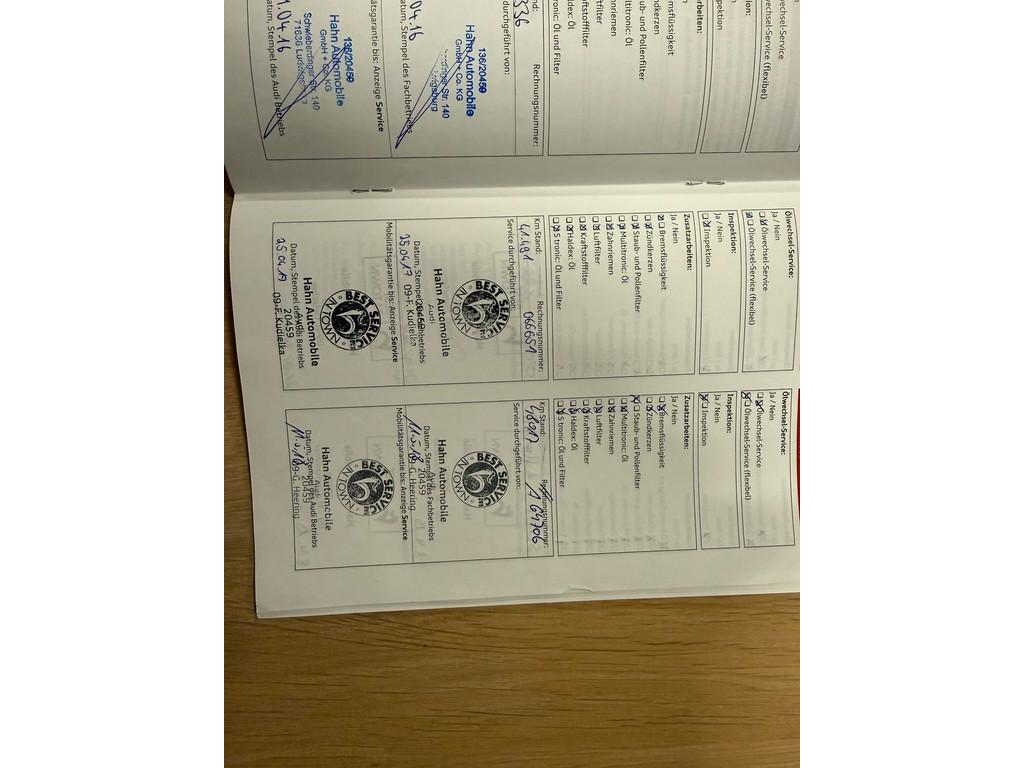 lwechsel-Service
lwechsel-Service (flexibel)
ion:
pektion
rbeiten:
msflüssigkeit
dkerzen
ub- und Pollenfilter
titronic: Öl
hnriemen
ftfilter
ftstofffilter
dex: Öl
onic: Öl und Filter
nd:
Rechnungsnummer:
336
durchgeführt von:
136/20459
Hahn Automobile
GmbH + Co. KG
Str. 140
04.16
atum, Stempel des Fachbetriebs
tätsgarantie bis: Anzeige Service
136/20459
Hahn Automobile
GmbH + Co. KG
Schwieberdinger Str. 140
71636 Ludwigsburg
1.04.16
atum, Stempel des Audi Betriebs
Ölwechsel-Service:
Ja / Nein
Ölwechsel-Service
Ölwechsel-Service (flexibel)
Inspektion:
Ja / Nein
Inspektion
Zusatzarbeiten:
Ja / Nein
Bremsflüssigkeit
Zündkerzen
Staub- und Pollenfilter
Multitronic: Öl
Zahnriemen
Luftfilter
Kraftstofffilter
Haldex: Öl
S tronic: Öl und Filter
Km Stand:
Rechnungsnummer:
41.491
066651
Service durchgeführt von:
BEST SERVICE
IN TOWN
Hahn Automobile
Audi
20459
25.04.17 09-F. Kudielka
Datum, Stempel des Fachbetriebs
Mobilitätsgarantie bis: Anzeige Service
BEST SERVICE
IN TOWN
Hahn Automobile
Audi
20459
09-F. Kudielka
25.04.17
Datum, Stempel des Audi Betriebs
Ölwechsel-Service:
Ja / Nein
Ölwechsel-Service
Ölwechsel-Service (flexibel)
Inspektion:
Ja / Nein
Inspektion
Zusatzarbeiten:
Ja / Nein
Bremsflüssigkeit
Zündkerzen
Staub- und Pollenfilter
Multitronic: Öl
Zahnriemen
Luftfilter
Kraftstofffilter
Haldex: Öl
S tronic: Öl und Filter
Km Stand:
Rechnungsnummer:
48917
64706
Service durchgeführt von:
BEST SERVICE
IN TOWN
Hahn Automobile
Audi
20459
09-G. Heering
11.5.18
Datum, Stempel des Fachbetriebs
Mobilitätsgarantie bis: Anzeige Service
BEST SERVICE
IN TOWN
Hahn Automobile
Audi
20459
09-G. Heering
11.5.18
Datum, Stempel des Audi Betriebs